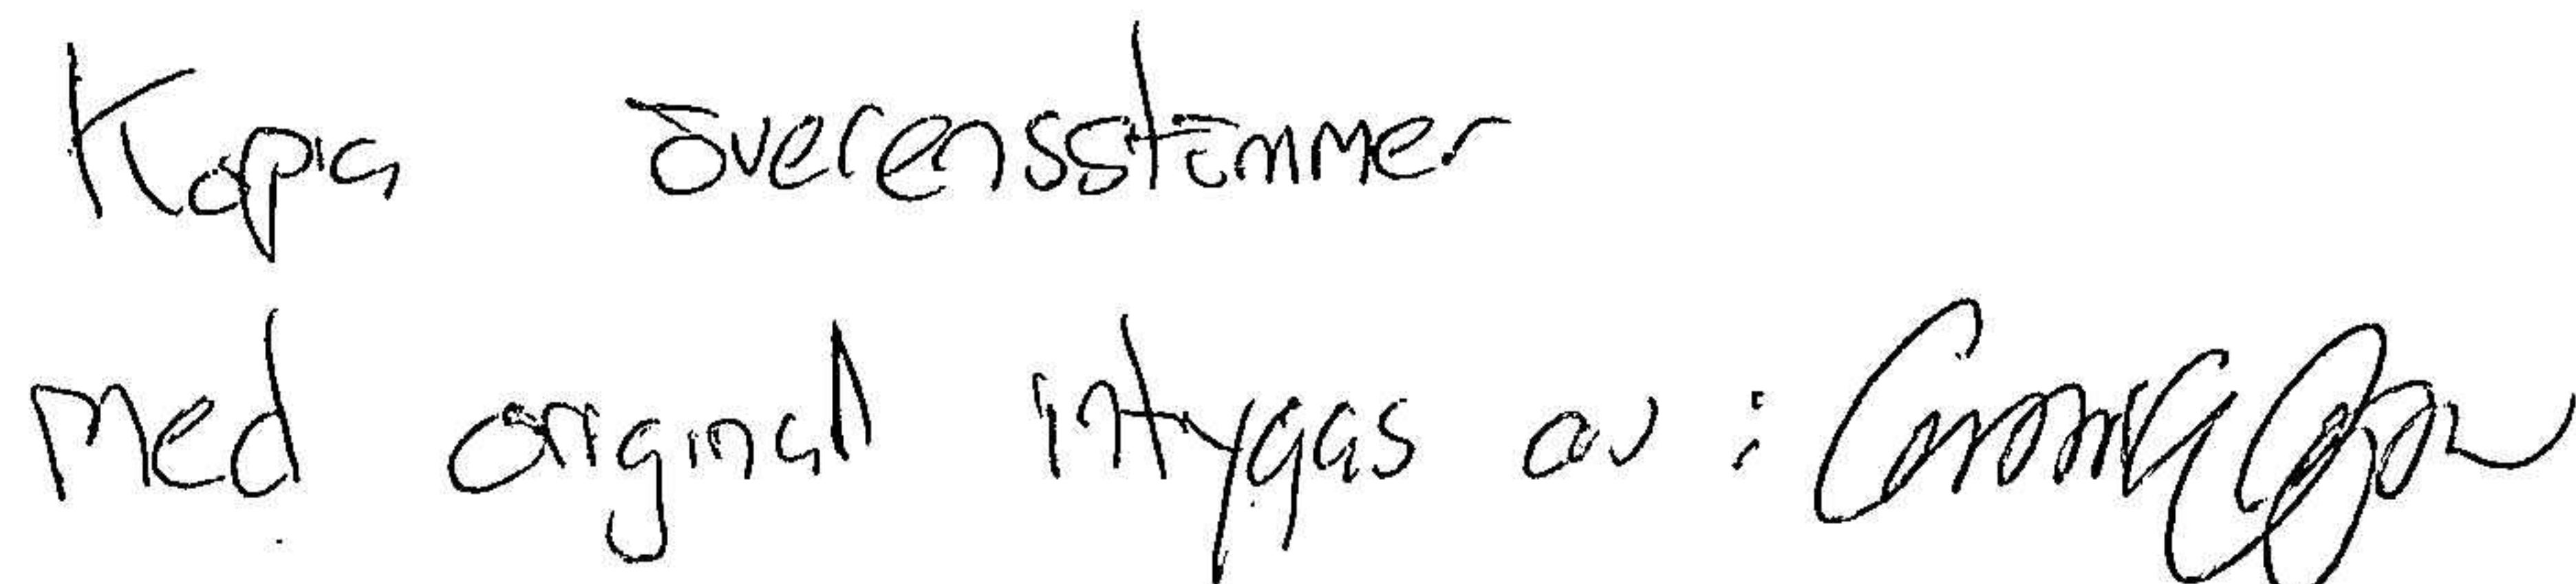 Kopia överensstämmer
med original intygas av :